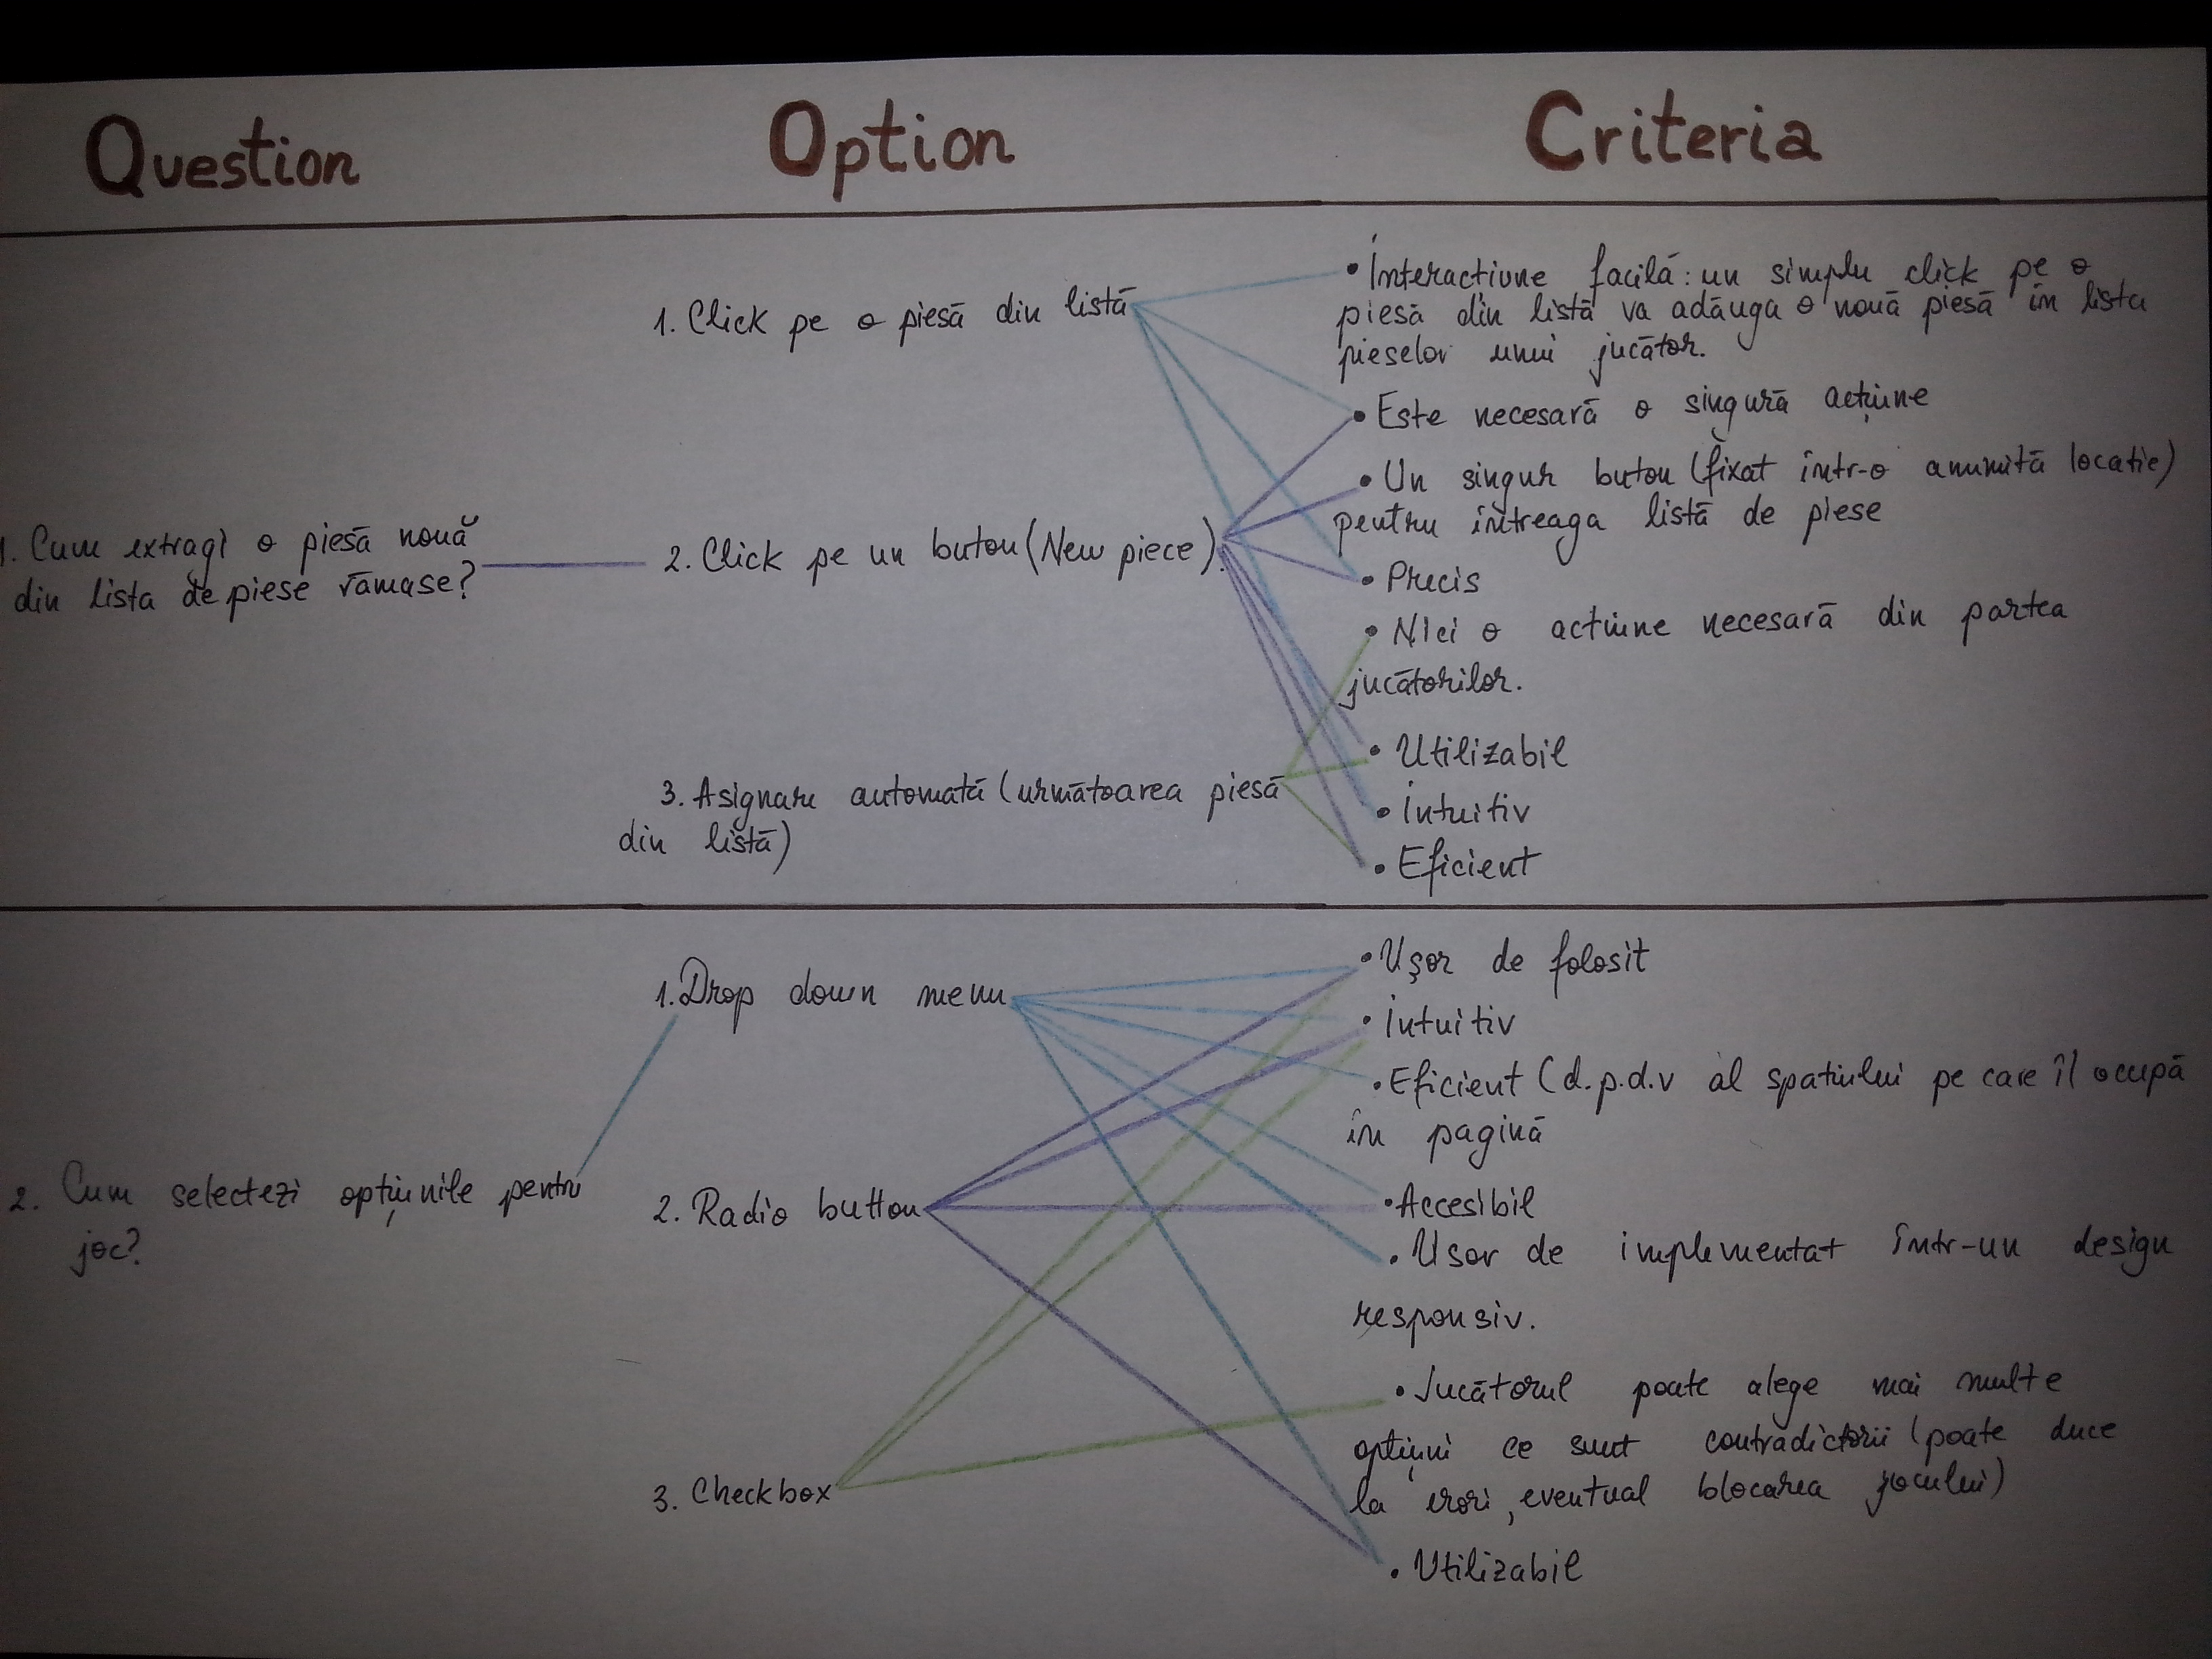 Question
Option
Criteria
1. Cum extragi o piesă nouă
din lista de piese rămase?
1. Click pe o piesă din listă
2. Click pe un buton (New piece).
3. Asignare automată (următoarea piesă
din listă)
• Interactiune facilă: un simplu click pe o
piesă din listă va adăuga o nouă piesă în lista
pieselor unui jucător.
• Este necesară o singură acțiune
• Un singur buton (fixat într-o anumită locatie)
pentru întreaga listă de piese
• Precis
• Nici o actiune necesară din partea
jucătorilor.
• Utilizabil
• Intuitiv
• Eficient
2. Cum selectezi opțiunile pentru
joc?
1. Drop down menu
2. Radio button
3. Checkbox
• Ușor de folosit
• Intuitiv
• Eficient (d.p.d.v al spatiului pe care îl ocupă
în pagină
• Accesibil
• Usor de implementat într-un design
responsiv.
• Jucătorul poate alege mai multe
opțiuni ce sunt contradictorii (poate duce
la erori, eventual blocarea jocului)
• Utilizabil